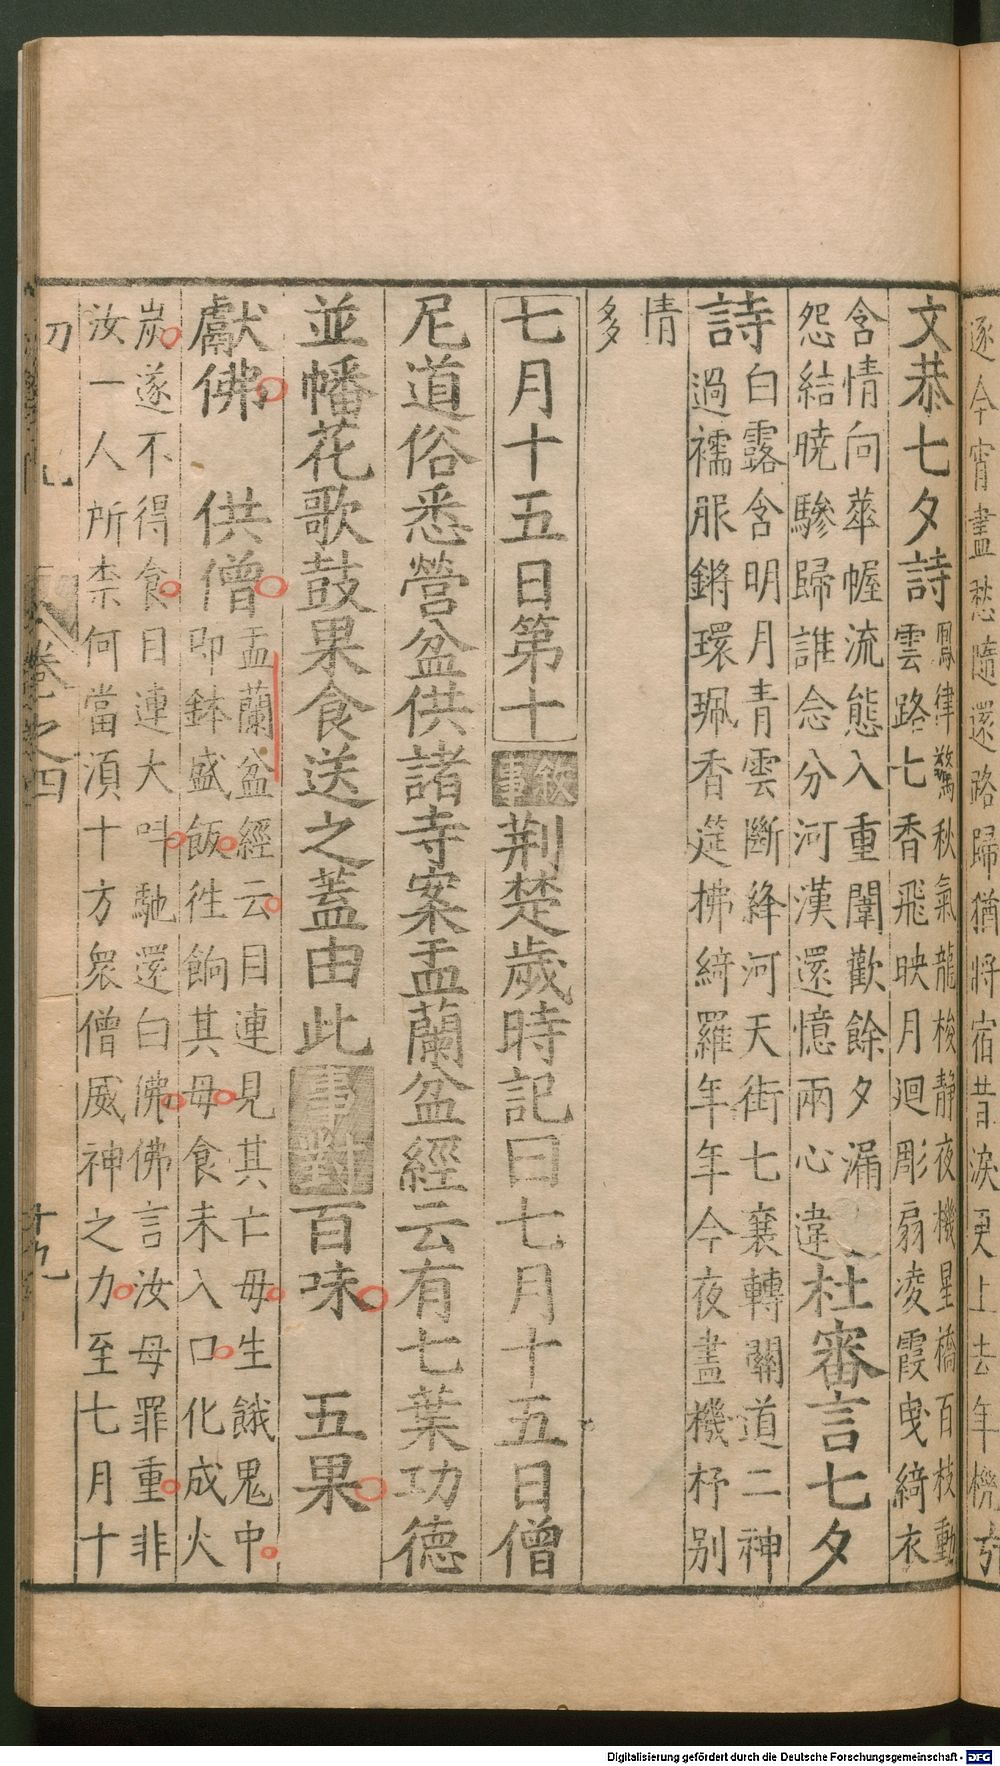 逐今宵盡愁隨還路歸猶將宿昔淚更上去年機
文恭七夕詩
鳳律驚秋氣龍梭靜夜機星橋百枝動
雲路七香飛映月迴彫扇凌霞曳綺衣
含情向華幄流態入重闈歡餘夕漏
怨結曉驂歸誰念分河漢還憶兩心違
杜審言七夕
詩
白露含明月青雲斷絳河天街七襄轉關道二神
過襦服鏘環珮香筵拂綺羅年年今夜盡機杼別
情
多
七月十五日第十 敘事 荆楚歲時記曰七月十五日僧
尼道俗悉營盆供諸寺案盂蘭盆經云有七葉功德
並幡花歌鼓果食送之蓋由此 事對 百味 五果
獻佛 供僧
盂蘭盆經云目連見其亡母生餓鬼中
即鉢盛飯往餉其母食未入口化成火
炭遂不得食目連大叫馳還白佛佛言汝母罪重非
汝一人所柰何當湏十方衆僧威神之力至七月十
卷之四
十九
Digitalisierung gefördert durch die Deutsche Forschungsgemeinschaft - DFG